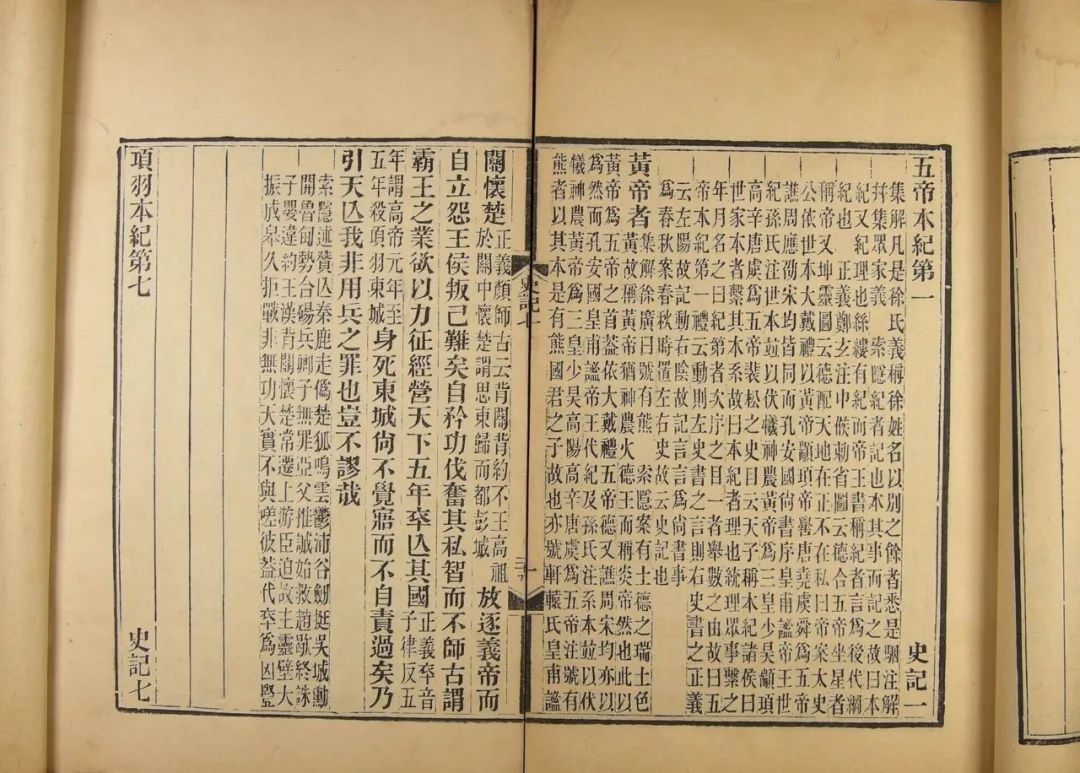 五帝本紀第一　史記一
集解凡是徐氏義稱徐姓名以別之餘者悉是駰注解
幷集眾家義　索隱紀者記也本其事而記之故曰本
紀又紀理也絲縷有紀而帝王書稱紀者言為後代綱
紀也　正義鄭玄注中候勅省圖云德合五帝坐星者
稱帝又坤靈圖云德配天地在正不在私曰帝案太史
公依世本大戴禮以黃帝顓頊帝嚳唐堯虞舜為五帝
譙周應劭宋均皆同而孔安國尚書序皇甫謐帝王世
紀孫氏注世本竝以伏犧神農黃帝為三皇少昊顓頊
高辛唐虞為五帝裴松之史目云天子稱本紀諸侯曰
世家本者繫其本系故曰本紀者理也統理眾事繫之
年月名之曰紀第者次序之目一者舉數之由故曰五
帝本紀第一禮云動則左史書之言則右史書之正義
云左陽故記動右陰故記言言為尚書事
為春秋案春秋時置左右史故云史記也
黃帝者
集解徐廣曰號有熊　索隱案有土德之瑞土色
黃故稱黃帝猶神農火德王而稱炎帝然也此以
黃帝為五帝之首蓋依大戴禮五帝德又譙周宋均亦以
為然而孔安國皇甫謐帝王代紀及孫氏注系本竝以伏
犧神農黃帝為三皇少昊高陽高辛唐虞為五帝注號有
熊者以其本是有熊國君之子故也亦號軒轅氏皇甫謐
史記
一
關懷楚
正義顏師古云背關背約不王高祖
於關中懷楚謂思東歸而都彭城
放逐義帝而
自立怨王侯叛己難矣自矜功伐奮其私智而不師古謂
霸王之業欲以力征經營天下五年卒亾其國
正義卒音
子律反五
年謂高帝元年至
五年殺項羽東城
身死東城尙不覺寤而不自責過矣乃
引天亾我非用兵之罪也豈不謬哉
索隱述贊亾秦鹿走僞楚狐鳴雲鬱沛谷劒挺吳城勳
開魯甸勢合碭兵卿子無罪亞父推誠始救趙歇終誅
子嬰違約王漢背關懷楚常遷上游臣迫故主靈壁大
振成皋久拒戰非無功天實不與嗟彼蓋代卒爲凶豎
項羽本紀第七　史記七